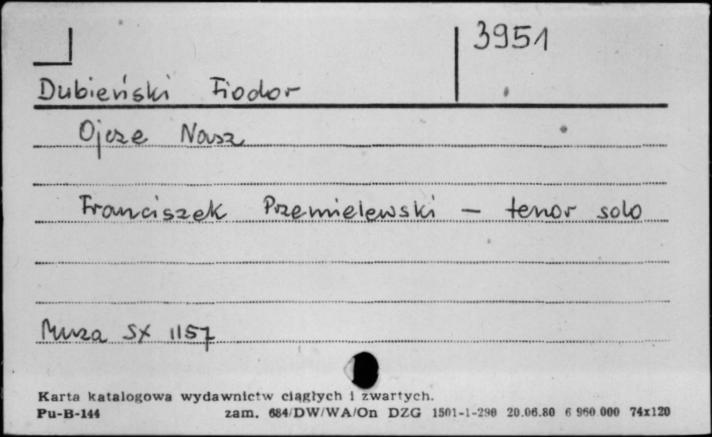 3951
Dubieński Fiodor
Ojcze Nasz
Franciszek Przemielewski – tenor solo
Muza SX 1157
Karta katalogowa wydawnictw ciągłych i zwartych.
Pu-B-144 zam. 684/DW/WA/On DZG 1501-1-290 20.06.80 6 960 000 74x120